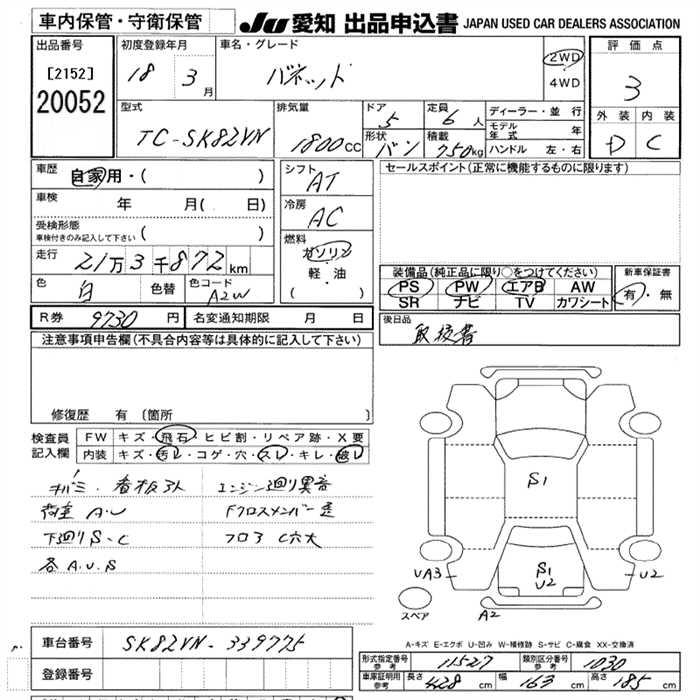 車内保管・守衛保管
JU 愛知 出品申込書 JAPAN USED CAR DEALERS ASSOCIATION
出品番号
[2152]
20052
初度登録年月
18 3月
車名・グレード
バネット
2WD
4WD
評価点
3
外装 内装
D C
型式
TC-SK82VN
排気量
1800cc
ドア 5
形状 バン
定員 6人
積載 750kg
ディーラー・並行
モデル年式 年
ハンドル 左・右
車歴 自家用・( )
車検 年 月( 日)
受検形態
車検付きのみ記入して下さい ( )
走行 21万3千872km
色 白 色替 色コード A2W
シフト AT
冷房 AC
燃料
ガソリン
軽・油
( )
セールスポイント(正常に機能するものに限ります)
装備品(純正品に限り○をつけてください)
PS PW エアB AW
SR ナビ TV カワシート
新車保証書
有・無
R券 9730円 名変通知期限 月 日
後日品
取扱書
注意事項申告欄(不具合内容等は具体的に記入して下さい)
修復歴 有(箇所 )
検査員記入欄
FW キズ・飛石・ヒビ割・リペア跡・X要
内装 キズ・汚レ・コゲ・穴・スレ・キレ・破レ
看板 エンジン廻り異音
荷室 A.U Fクロスメンバー
下廻りS.C フロア C穴大
各A.U.S
S1
S1
U2
UA3
U2
A2
スペア
A-キズ E-エクボ U-凹み W-補修跡 S-サビ C-腐食 XX-交換済
車台番号 SK82VN-339775
登録番号
形式指定番号 参考 11527 類別区分番号 参考 1030
車庫証明用 参考 長さ 428cm 幅 163cm 高さ 185cm